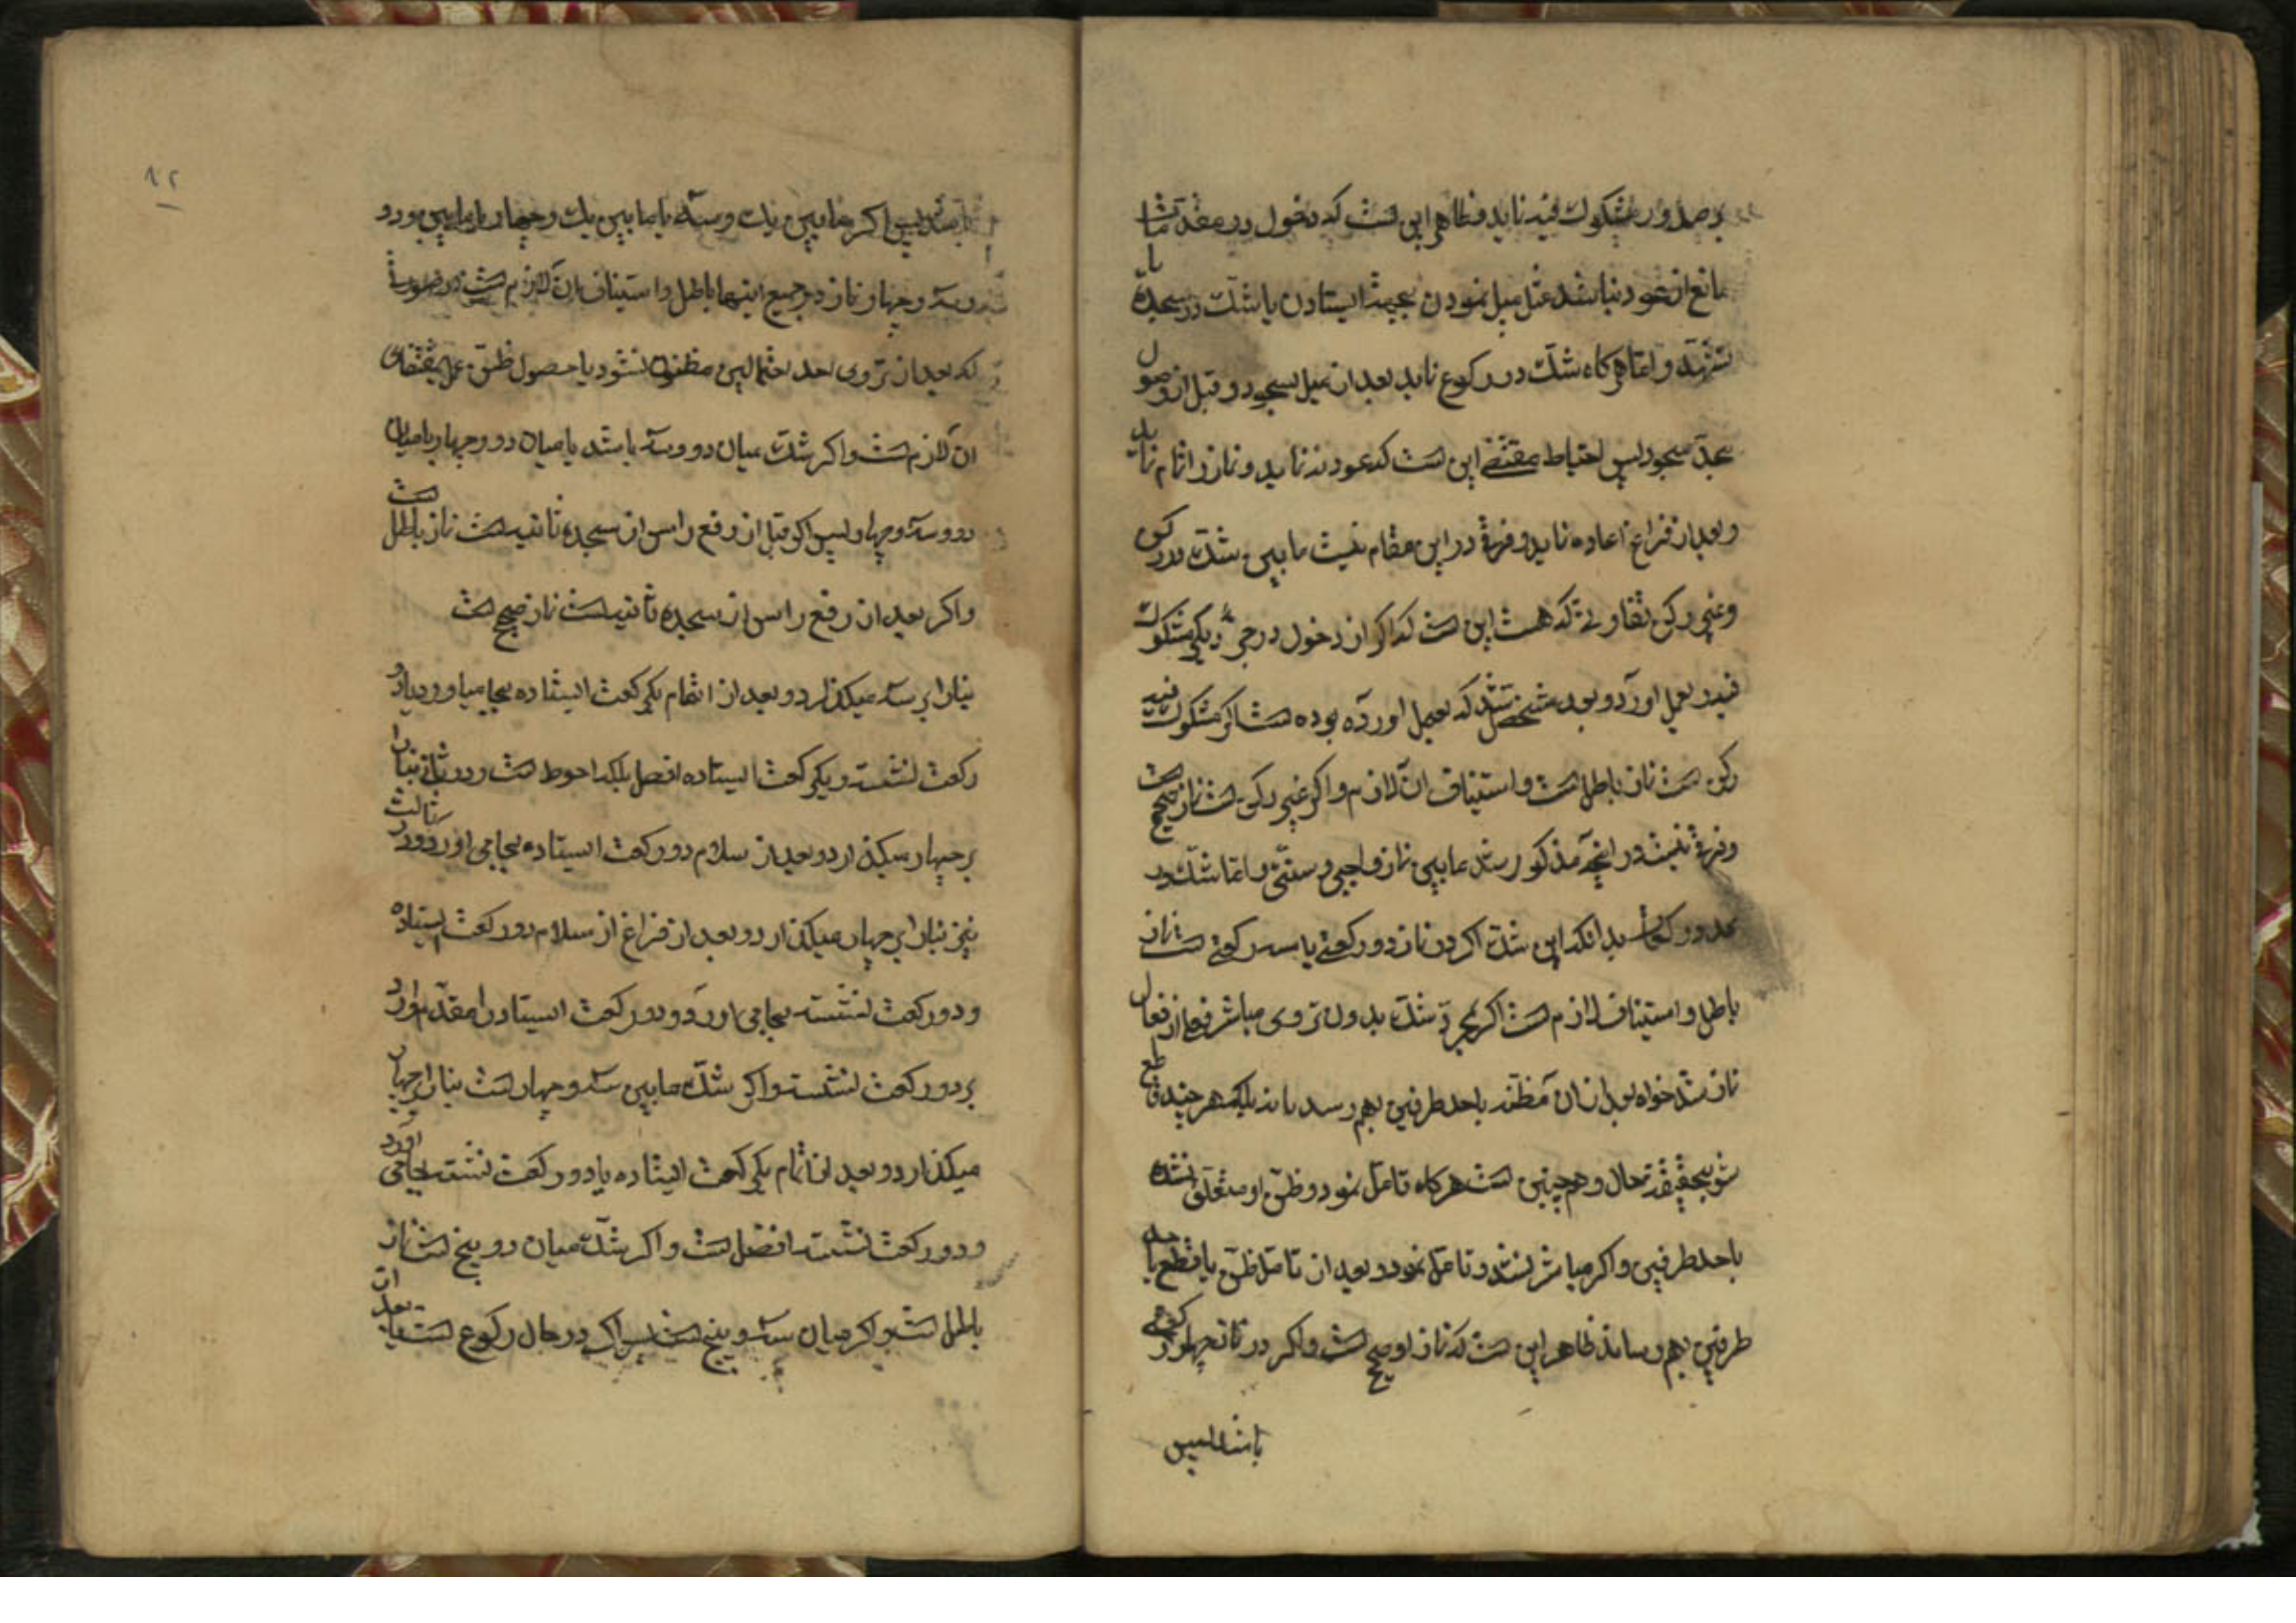 بر صدور مشکوک فیه نماید و ظاهر این است که دخول در مقدمات
مانع از عود نباشد مثل میل نمودن بجهة ایستادن یا شک در سجده یا
تشهد و اما هرگاه شک در رکوع نماید بعد از میل بسجود و قبل از وصول
بحد سجود پس احتیاط مقتضی این است که عود ننماید و نماز را تمام نماید
و بعد از فراغ اعاده نماید و فرق در این مقام نیست ما بین شک در رکن
و غیر رکن تفاوتی که هست این است که اگر از دخول در جزء دیگر مشکوک
فیه را بعمل آورد و بعد مشخص شد که بعمل آورده بوده است اگر مشکوک فیه
رکن است نماز باطل است و استیناف آن لازم و اگر غیر رکن است نماز صحیح است
و فرق نیست در آنچه مذکور شد ما بین نماز واجبی و سنتی و اما شک در
عدد رکعات بدانکه این شک اگر در نماز دو رکعتی یا سه رکعتی است نماز
باطل و استیناف لازم است اگر بمجرد شک بدون تروی مباشر فعلی از افعال
نماز شد خواه بعد از آن مظنه باحد طرفین بهم رساند یا نه بلکه هر چند قاطع
شود بحقیقة حال و همچنین است هرگاه تأمل نمود و ظن او متعلق نشده
باحد طرفین و اگر مباشر نشد و تأمل نمود و بعد از تأمل ظن یا قطع باحد
طرفین بهم رساند ظاهر این است که نماز او صحیح است و اگر در نماز چهار رکعتی
باشد پس
١٢
باشد پس اگر ما بین یک و سه یا ما بین یک و چهار یا ما بین و دو
و سه و چهار نماز در جمیع اینها باطل و استیناف آن لازم است در صورتی
که بعد از تروی احد احتمالین مظنون نشود با حصول ظن عمل بمقتضای
آن لازم است و اگر شک میان دو و سه باشد یا میان دو و چهار یا میان
دو و سه و چهار پس اگر قبل از رفع راس از سجده ثانیه است نماز باطل است
و اگر بعد از رفع راس از سجده ثانیه است نماز صحیح است
بنا را بر سه میگذارد و بعد از اتمام یک رکعت ایستاده بجا میاورد یا دو
رکعت نشسته و یک رکعت ایستاده افضل بلکه احوط است و در ثانی بنا را
بر چهار میگذارد و بعد از سلام دو رکعت ایستاده بجا می آورد و در ثالث
نیز بنا را بر چهار میگذارد و بعد از فراغ از سلام دو رکعت ایستاده
و دو رکعت نشسته بجا می آورد و دو رکعت ایستاده را مقدم دارد
بر دو رکعت نشسته و اگر شک ما بین سه و چهار است بنا را بر چهار
میگذارد و بعد از اتمام یک رکعت ایستاده یا دو رکعت نشسته بجا می آورد
و دو رکعت نشسته افضل است و اگر شک میان دو و پنج است نماز
باطل است و اگر میان سه و پنج است پس اگر در حال رکوع است یا بعد از آن